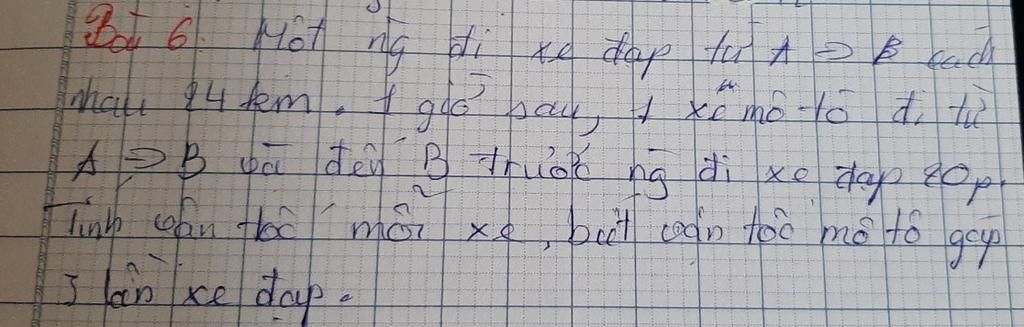 Bài 6. Một ng đi xe đạp từ A => B cách
nhau 24 km. 1 giờ sau, 1 xe mô tô đi từ
A => B và đến B trước ng đi xe đạp 20p.
Tính vận tốc mỗi xe, biết vận tốc mô tô gấp
3 lần xe đạp.